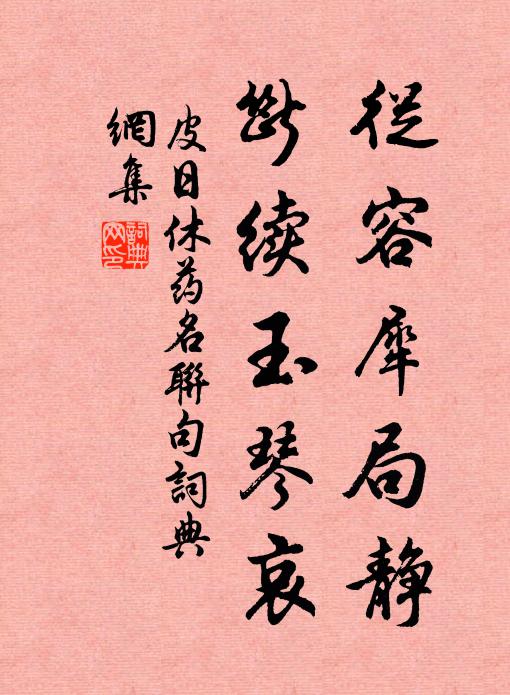 從容犀局静
斷续玉琴哀
皮日休药名聯句詞典
網集
詞典网印